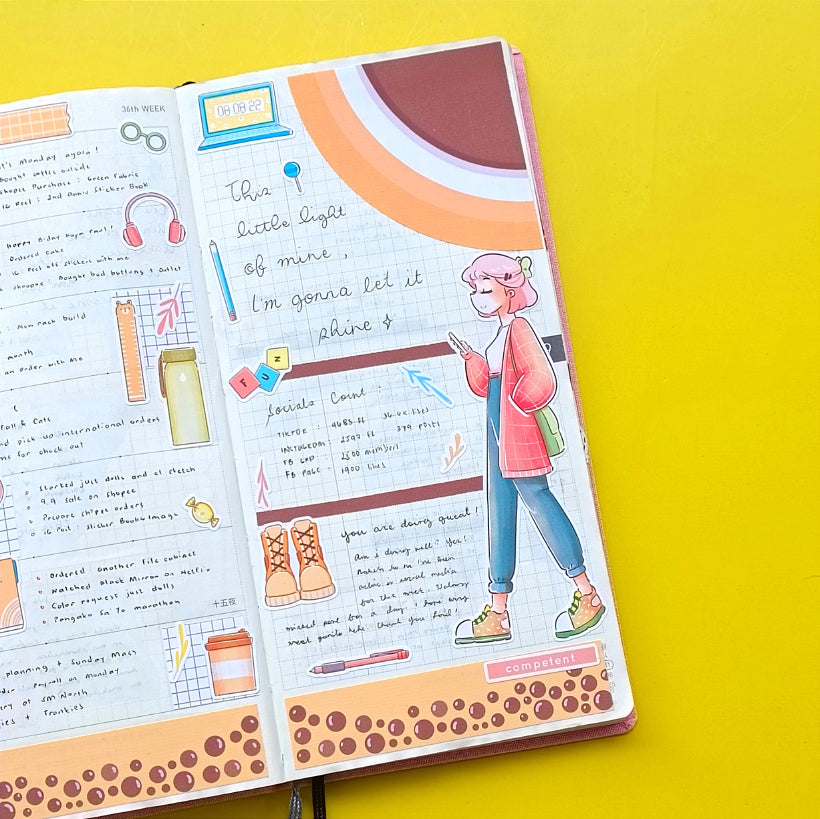 36th WEEK
it's Monday again!
Bought coffee outside
Shopee Purchase : Green Fabric
IG Reel : 2nd Sticker Book
Happy B-day
Ordered cake
IG Reel stickers with me
Shopee : Bought bud buttons + outlet
: New rack build
month
an order with Me
& Cats
and pick up international orders
for check out
Started just dolls and cl sketch
9.9 sale on shopee
Prepare shopee orders
IG Post : Sticker Book Image
Ordered another file cabinet
Watched Black Mirror on Netflix
Color request just dolls
Pangako Sa Yo marathon
十五夜
planning + Sunday Mass
Payroll on Monday
of SM North
+ Frankies
08 09 22
This
little light
of mine,
I'm gonna let it
shine
FUN
Socials Count :
TIKTOK : 4683 fl 36.6k likes
INSTAGRAM : 2597 fl 279 posts
FB GRP : 2500 members
FB PAGE : 1900 likes
you are doing great!
Am I doing well? Yes!
I've been
active in social media
for this week.
post for a day. I hope my
Thank you Lord!
competent